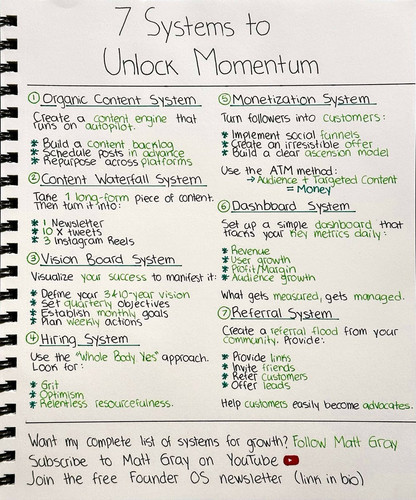 7 Systems to
Unlock Momentum
① Organic Content System
Create a content engine that
runs on autopilot.
* Build a content backlog
* Schedule posts in advance
* Repurpose across platforms
② Content Waterfall System
Take 1 long-form piece of content.
Then turn it into:
* 1 Newsletter
* 10 X tweets
* 3 Instagram Reels
③ Vision Board System
Visualize your success to manifest it:
* Define your 3+10-year vision
* Set quarterly objectives
* Establish monthly goals
* Plan weekly actions
④ Hiring System
Use the "Whole Body Yes" approach.
Look for:
* Grit
* Optimism
* Relentless resourcefulness.
⑤ Monetization System
Turn followers into customers:
* Implement social funnels
* Create an irresistible offer
* Build a clear ascension model
Use the ATM method:
→ Audience + Targeted Content
= Money
⑥ Dashboard System
Set up a simple dashboard that
tracks your key metrics daily:
* Revenue
* User growth
* Profit/Margin
* Audience growth
What gets measured, gets managed.
⑦ Referral System
Create a referral flood from your
community. Provide:
* Provide links
* Invite friends
* Refer customers
* Offer leads
Help customers easily become advocates.
Want my complete list of systems for growth? Follow Matt Gray
Subscribe to Matt Gray on YouTube
Join the free Founder OS newsletter (link in bio)